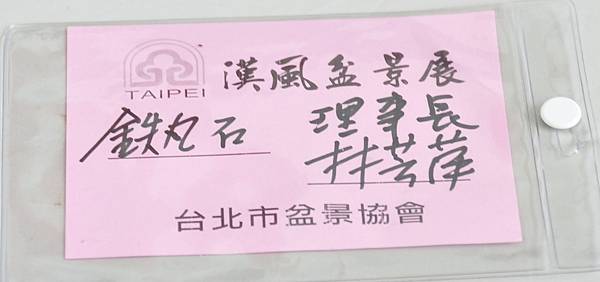 漢風盆景展
TAIPEI
鉄丸石
理事長
林芸萍
台北市盆景協會